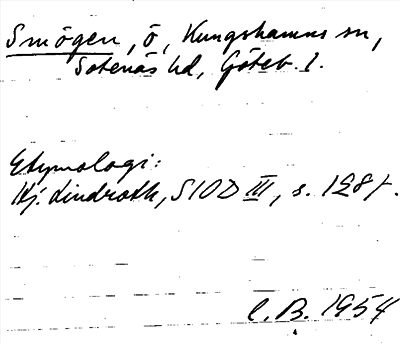 Smögen, ö, Kungshamns sn,
Sotenäs hd, Göteb. l.
Etymologi:
Hj. Lindroth, SIOD III, s. 128f.
C. B. 1954